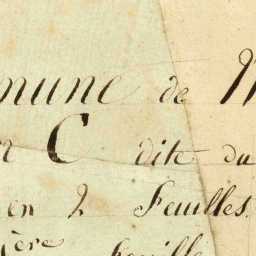 mune de
n C dite du
en 2 Feuilles.
ère feuille